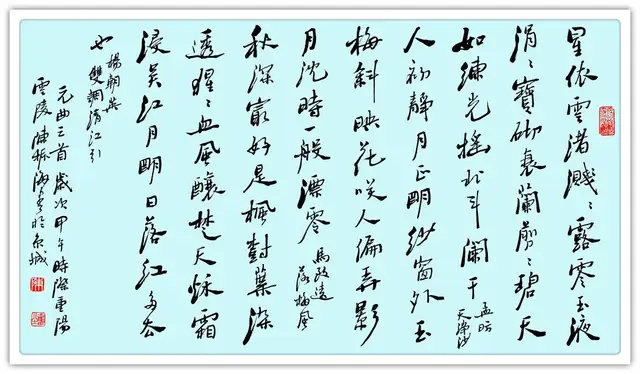 星依雲渚濺〻露零玉液
涓〻寶砌衰蘭剪〻碧天
如練光摇北斗闌干
孟昉
天淨沙
人初靜月正明紗窗外玉
梅斜映花咲人偏弄影
月沈時一般漂零
馬致遠
落梅風
秋深最好是楓樹葉染
透猩〻血風釀楚天秋霜
浸吴江月明日落红多去
也
楊朝英
雙調清江引
元曲三首歲次甲午時際重陽
雲陵陳振書於京城